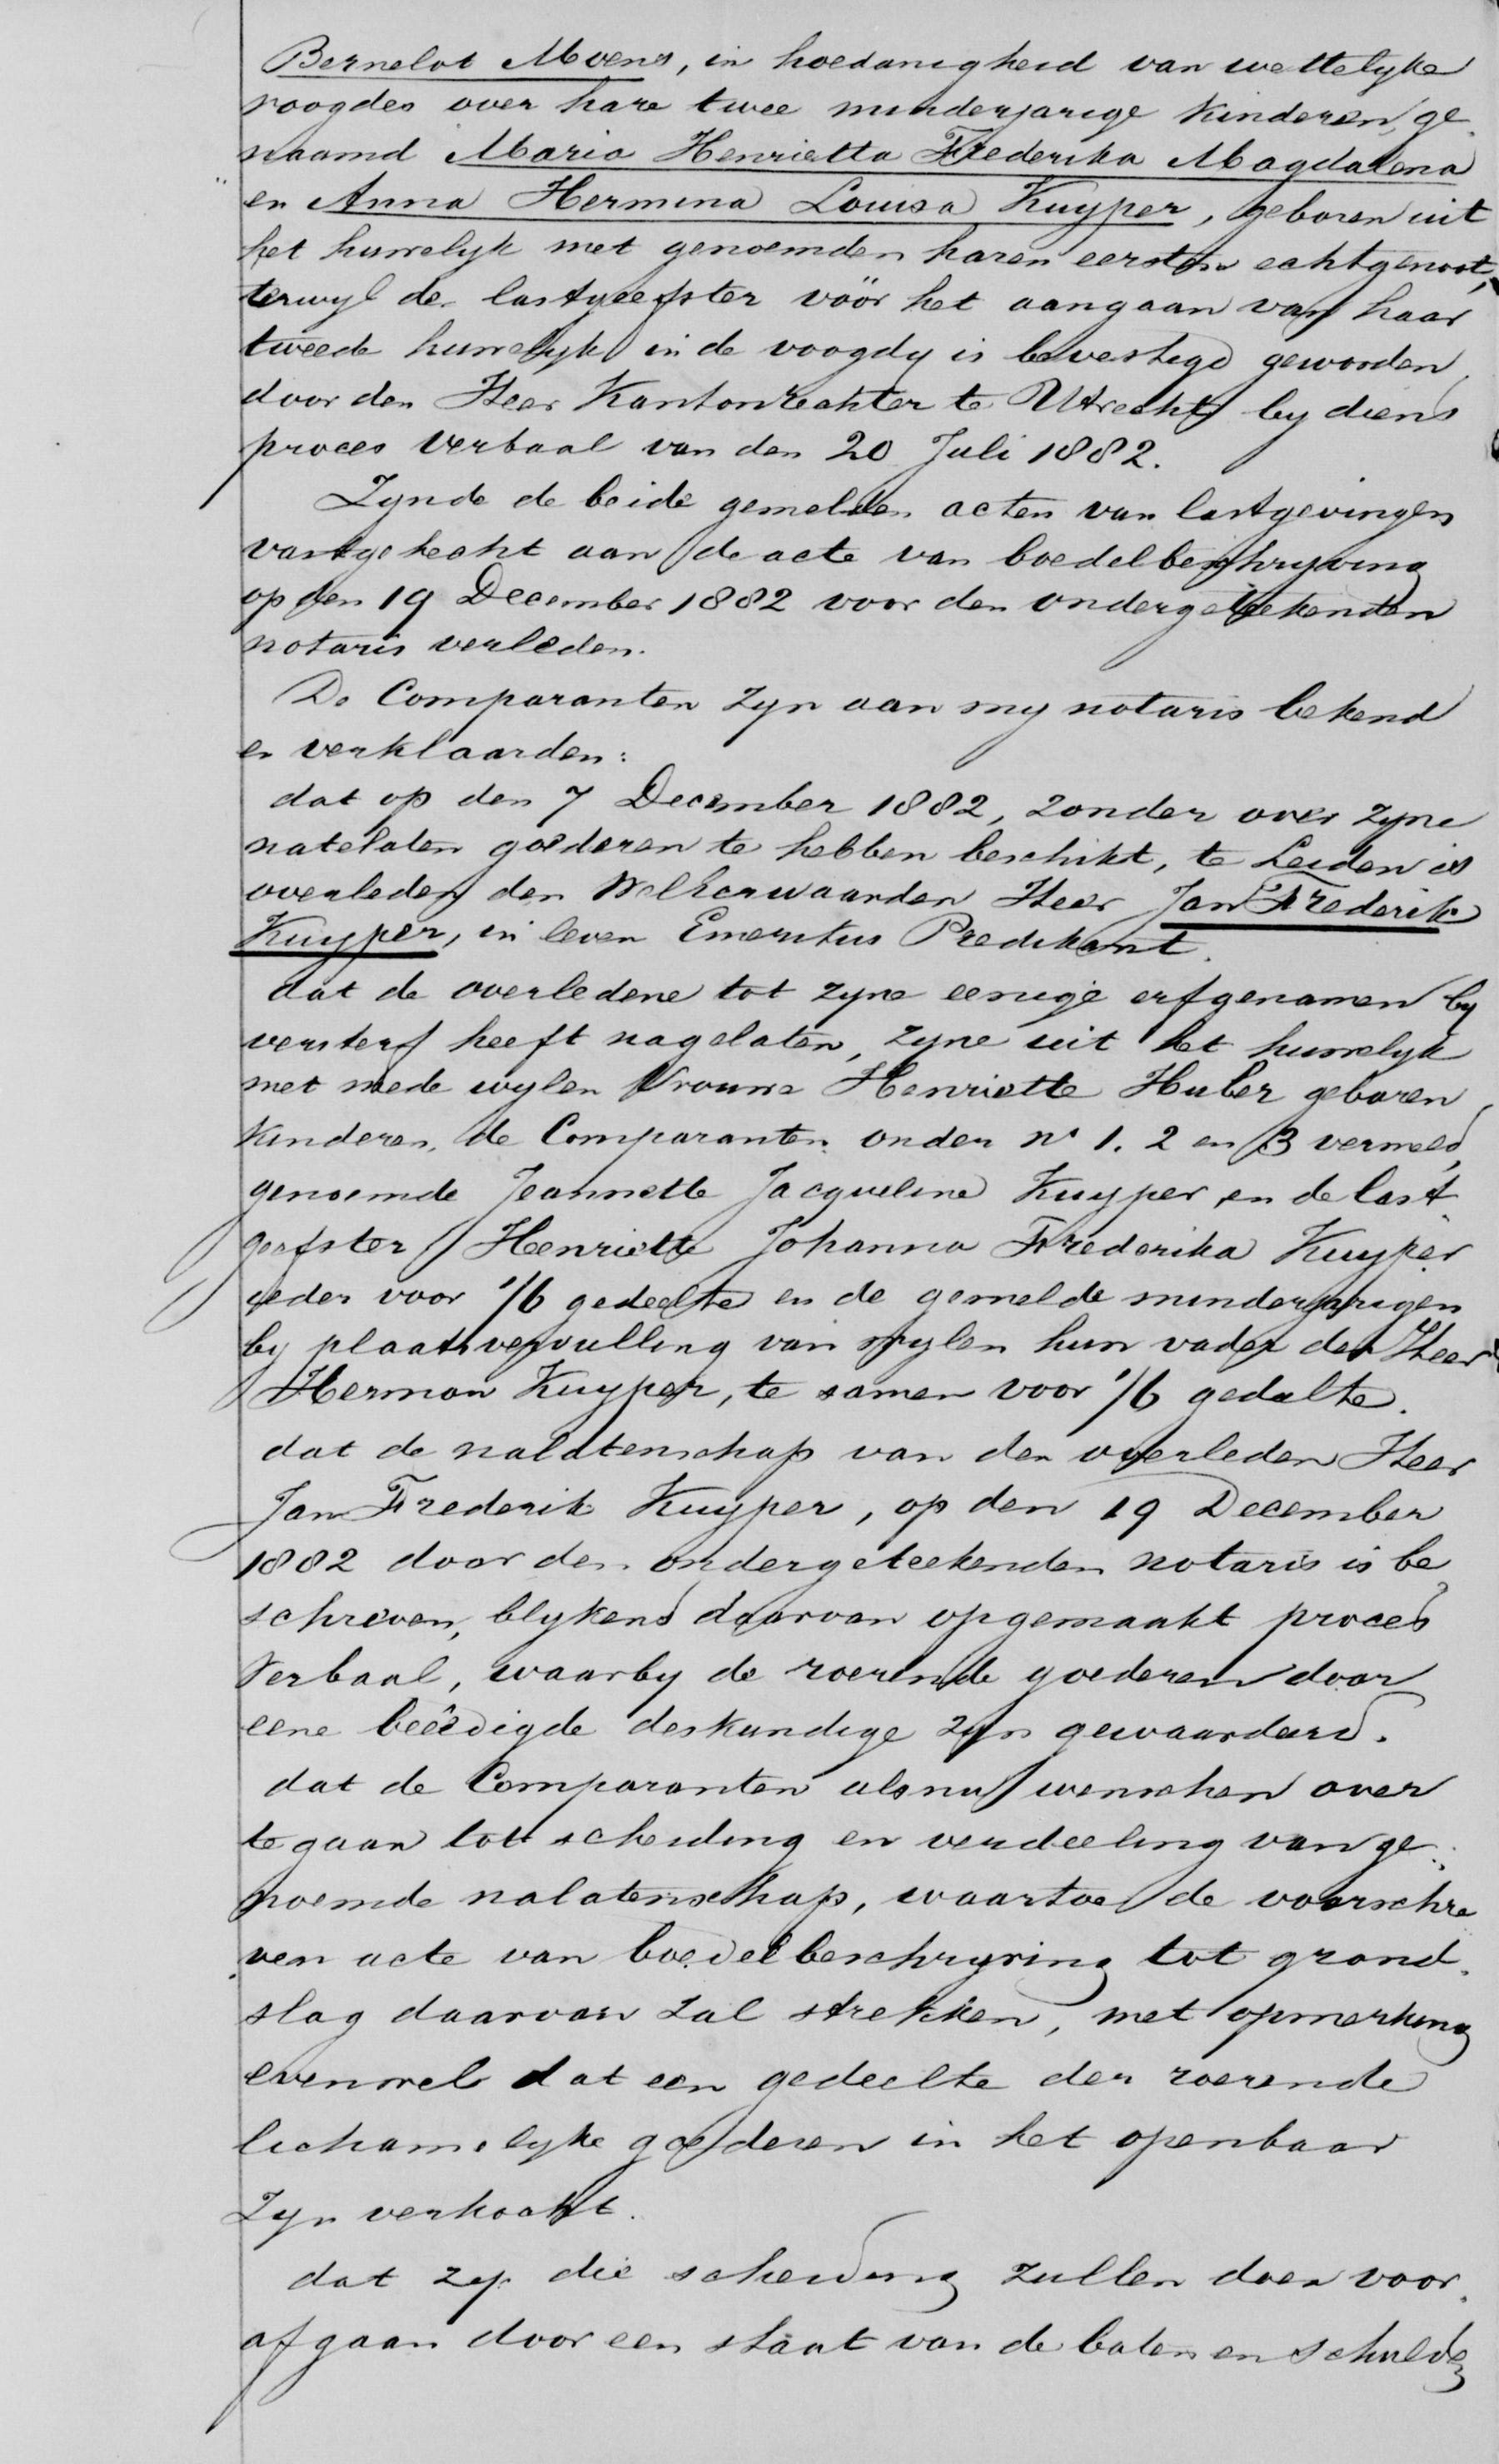 Bernelot Moens, in hoedanigheid van wettelyke
voogdes over hare twee minderjarige kinderen, ge-
naamd Maria Henrietta Frederika Magdalena
en Anna Hermina Louisa Kuyper, geboren uit
het huwelyk met genoemden haren eersten echtgenoot,
terwyl de lastgeefster vöör het aangaan van haar
tweede huwelyk in de voogdy is bevestigd geworden
door den Heer Kantonrechter te Utrecht by diens
proces verbaal van den 20 Juli 1882.
Zynde de beide gemelde acten van lastgevingen
vastgehecht aan de acte van boedelbeschryving
op den 19 December 1882 voor den ondergeteekenden
notaris verleden.
De Comparanten zyn aan my notaris bekend
en verklaarden:
dat op den 7 December 1882, zonder over zyne
natelaten goederen te hebben beschikt, te Leiden is
overleden den WelEerwaarden Heer Jan Frederik
Kuyper, in leven Emeritus Predikant.
dat de overledene tot zyne eenige erfgenamen by
versterf heeft nagelaten, zyne uit het huwelyk
met mede wylen Vrouwe Henriette Huber geboren
kinderen, de Comparanten onder no 1. 2 en 3 vermeld,
genoemde Jeannette Jacqueline Kuyper en de last-
geefster Henriette Johanna Frederika Kuyper
ieder voor 1/6 gedeelte en de gemelde minderjarigen
by plaatsvervulling van wylen hun vader den Heer
Herman Kuyper, te samen voor 1/6 gedeelte.
dat de nalatenschap van den overleden Heer
Jan Frederik Kuyper, op den 19 December
1882 door den ondergeteekenden notaris is be
schreven, blykens daarvan opgemaakt proces
Verbaal, waarby de roerende goederen door
eene beëedigde deskundige zyn gewaardeerd.
dat de Comparanten alsnu wenschen over
te gaan tot scheiding en verdeeling van ge-
noemde nalatenschap, waartoe de voorschre
ven acte van boedelbeschryving tot grond-
slag daarvan zal strekken, met opmerking
evenwel dat een gedeelte der roerende
lichamelyke goederen in het openbaar
zyn verkocht.
dat zy die scheiding zullen doen voor-
afgaan door een staat van de baten en schulden